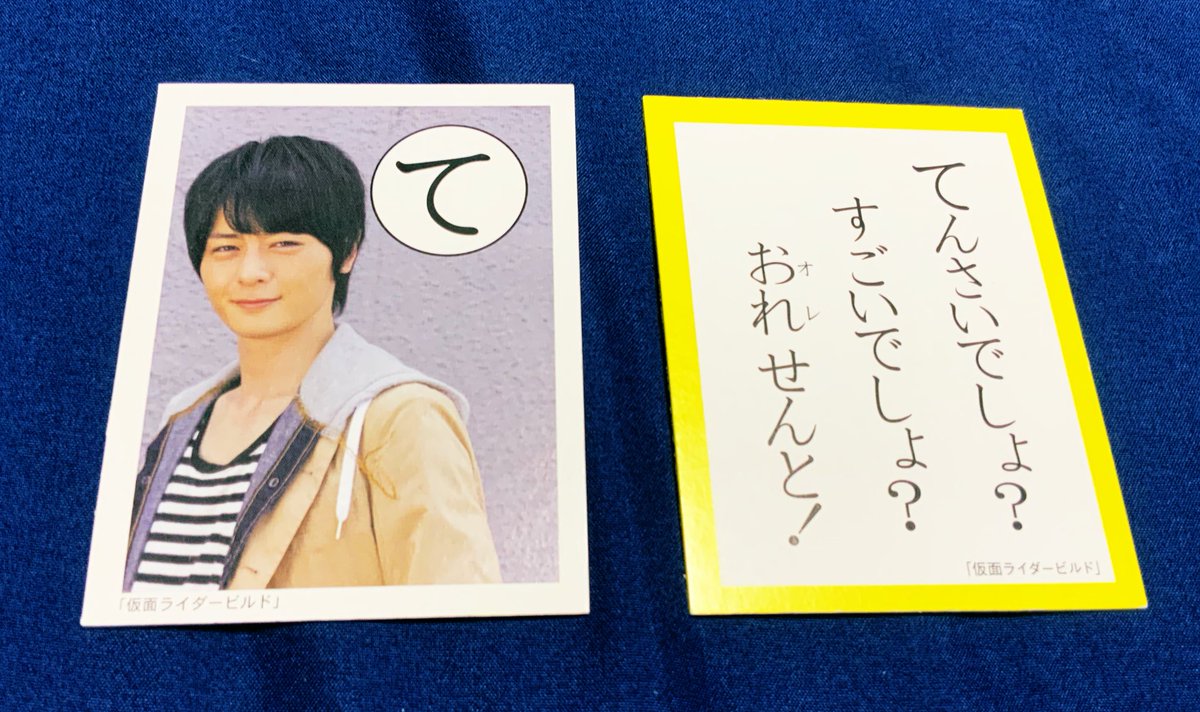 て
「仮面ライダービルド」
てんさいでしょ?
すごいでしょ?
おれ せんと!
オレ
「仮面ライダービルド」